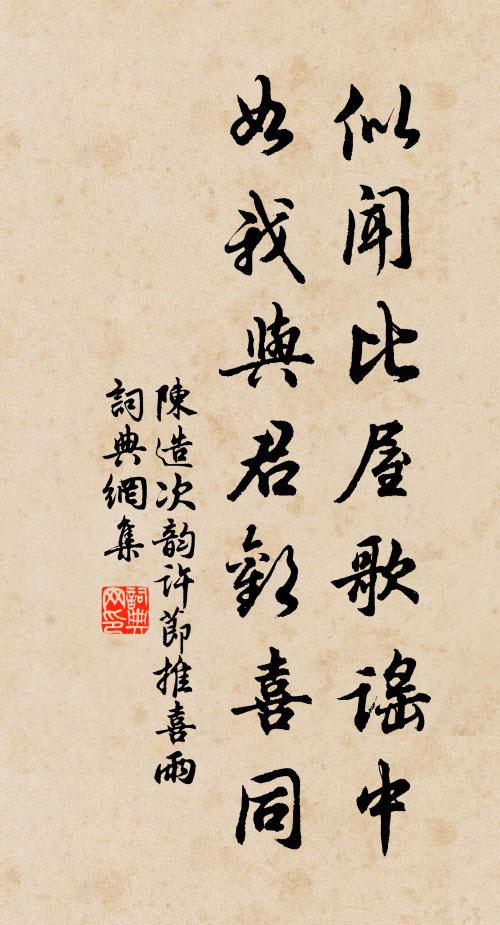 似聞比屋歌謠中
如我與君歡喜同
陳造次韵許節推喜雨
詞典網集
詞典网印